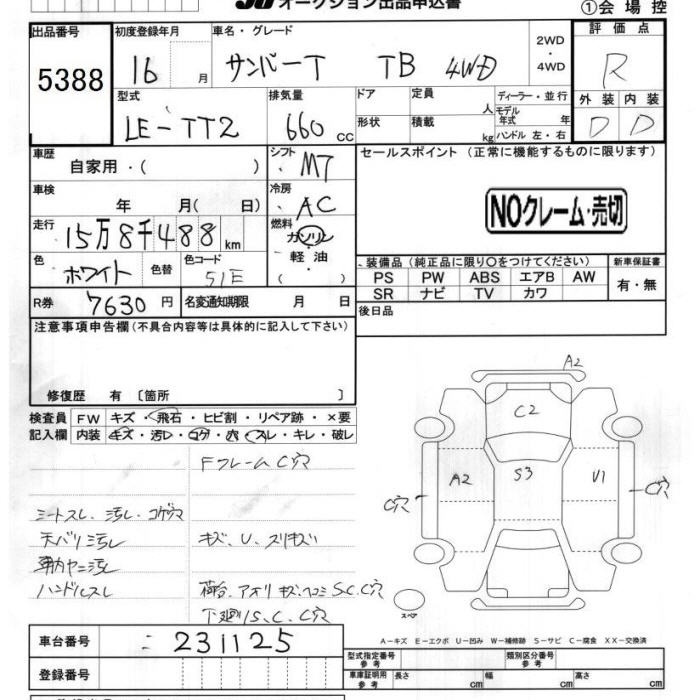 オークション出品申込書
①会場控
出品番号 初度登録年月 車名・グレード 評価点
5388 16 月 サンバーT TB 4WD 2WD・4WD R
型式 排気量 ドア 定員 ディーラー・並行 外装 内装
LE-TT2 660 CC 形状 積載 人 kg モデル年式 年 D D
ハンドル 左・右
車歴 シフト セールスポイント (正常に機能するものに限ります)
自家用・( ) M7
車検 年 月( 日) 冷房 AC NOクレーム・売切
走行 燃料
15万8千488 km ガソリン・軽油・( )
色 ホワイト 色替 色コード 51E
装備品(純正品に限り○をつけてください) 新車保証書
PS PW ABS エアB AW 有・無
SR ナビ TV カワ
R券 7630 円 名変通知期限 月 日 後日品
注意事項申告欄(不具合内容等は具体的に記入して下さい)
修復歴 有 〔箇所 〕
検査員 FW キズ・飛石・ヒビ割・リペア跡・×要
記入欄 内装 キズ・汚レ・コゲ・穴・スレ・キレ・破レ
Fフレーム C穴
シートスレ、汚レ、コゲ穴
天バリ汚レ キズ、U、スリキズ
車内ヤニ汚レ
ハンドルスレ 荷台、アオリ キズヘコミ S.C.C穴
下廻りS、C、C穴
A2
C2
A2 S3 V1
C穴 C穴
スペア
A-キズ E-エクボ U-凹み W-補修跡 S-サビ C-腐食 XX-交換済
車台番号 231125
型式指定番号 参考 類別区分番号 参考
登録番号 車庫証明用 参考 長さ cm 幅 cm 高さ cm